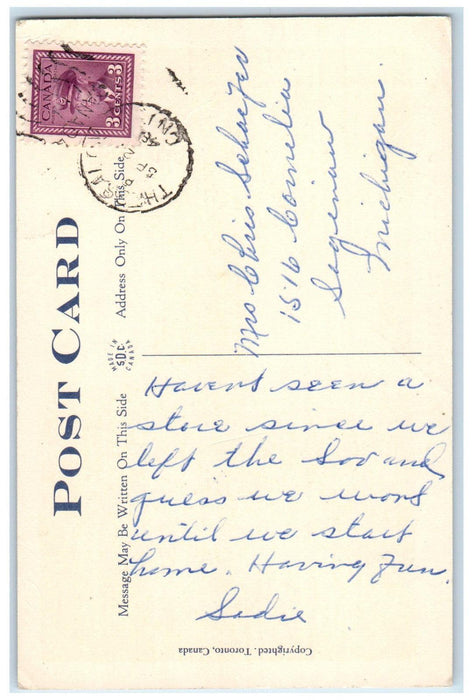 POST CARD
CANADA
3 CENTS 3
Message May Be Written On This Side
Address Only On This Side
MADE IN
S.D.C.
CANADA
Havent seen a
store since we
left the Soo and
guess we wont
until we start
home. Having fun.
Sadie
Mrs Chris Schaefer
1516 Cornelia
Saginaw
Michigan.
Copyrighted. Toronto, Canada